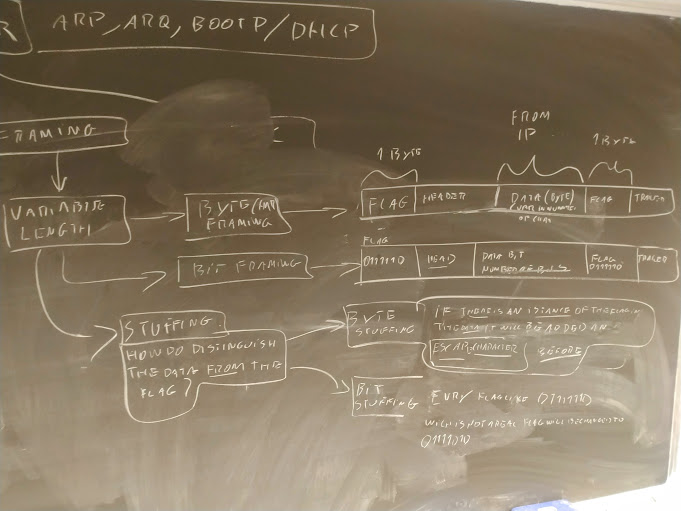 R ARP, ARQ, BOOTP/DHCP
FRAMING
VARIABLE
LENGTH
BYTE
FRAMING
BIT FRAMING
1 BYTE
FROM
IP
1 BYTE
FLAG HEADER DATA (BYTE) FLAG TRAILER
OF CHAR
FLAG
01111110 HEAD DATA BIT FLAG TRAILER
NUMBER OF BITS 01111110
STUFFING
HOW DO DISTINGUISH
THE DATA FROM THE
FLAG?
BYTE
STUFFING
IF THERE IS AN ISTANCE OF THE FLAG IN
THE DATA IT WILL BE ADDED AN
ESCAPE CHARACTER BEFORE
BIT
STUFFING
EVRY FLAG LIKE 01111110
WICH IS NOT A REAL FLAG WILL BE